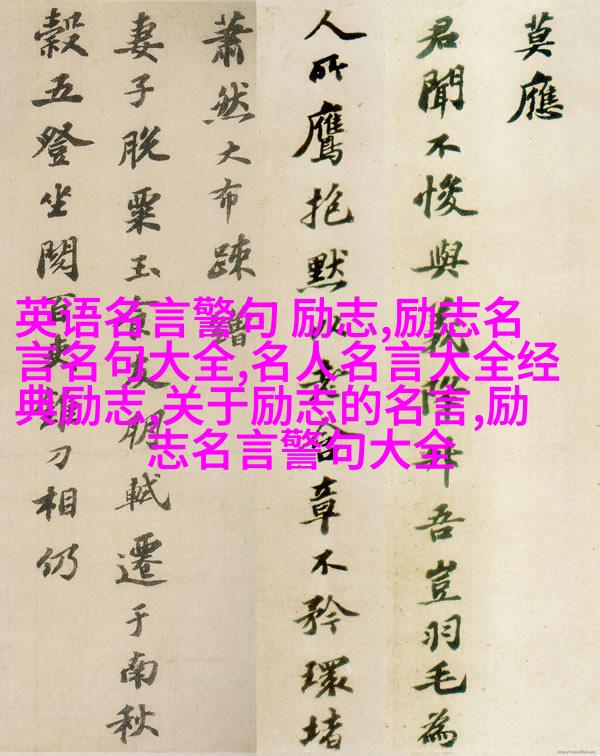 莫應
君聞不悛與義降升吾豈羽毛為
人所鷹抱默以老含章不矜環堵
蕭然大布疎繒
妻子脫粟玉食友朋軾遷于南秋
穀五登坐閱百吏錐刀相仍
英语名言警句 励志,励志名
言名句大全,名人名言大全经
典励志,关于励志的名言,励
志名言警句大全